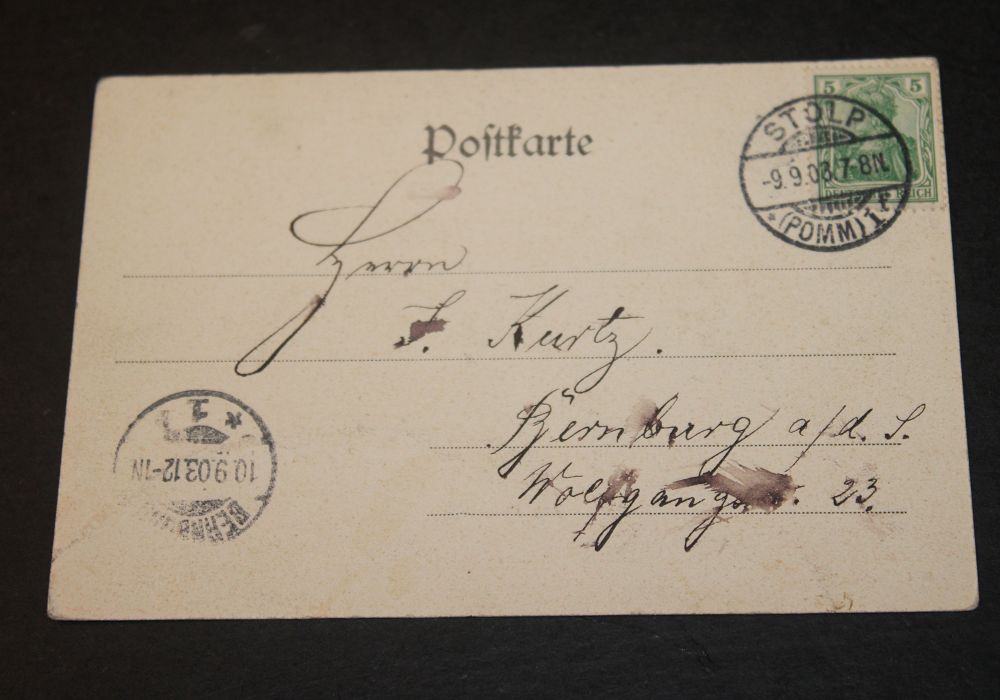 Postkarte
5 5
DEUTSCHES REICH
STOLP
-9.9.03.7-8N.
*(POMM)1f
Herrn
J. Kurtz.
Bernburg a/d. S.
23.
* 1
10.9.03.12-1N
BERNB